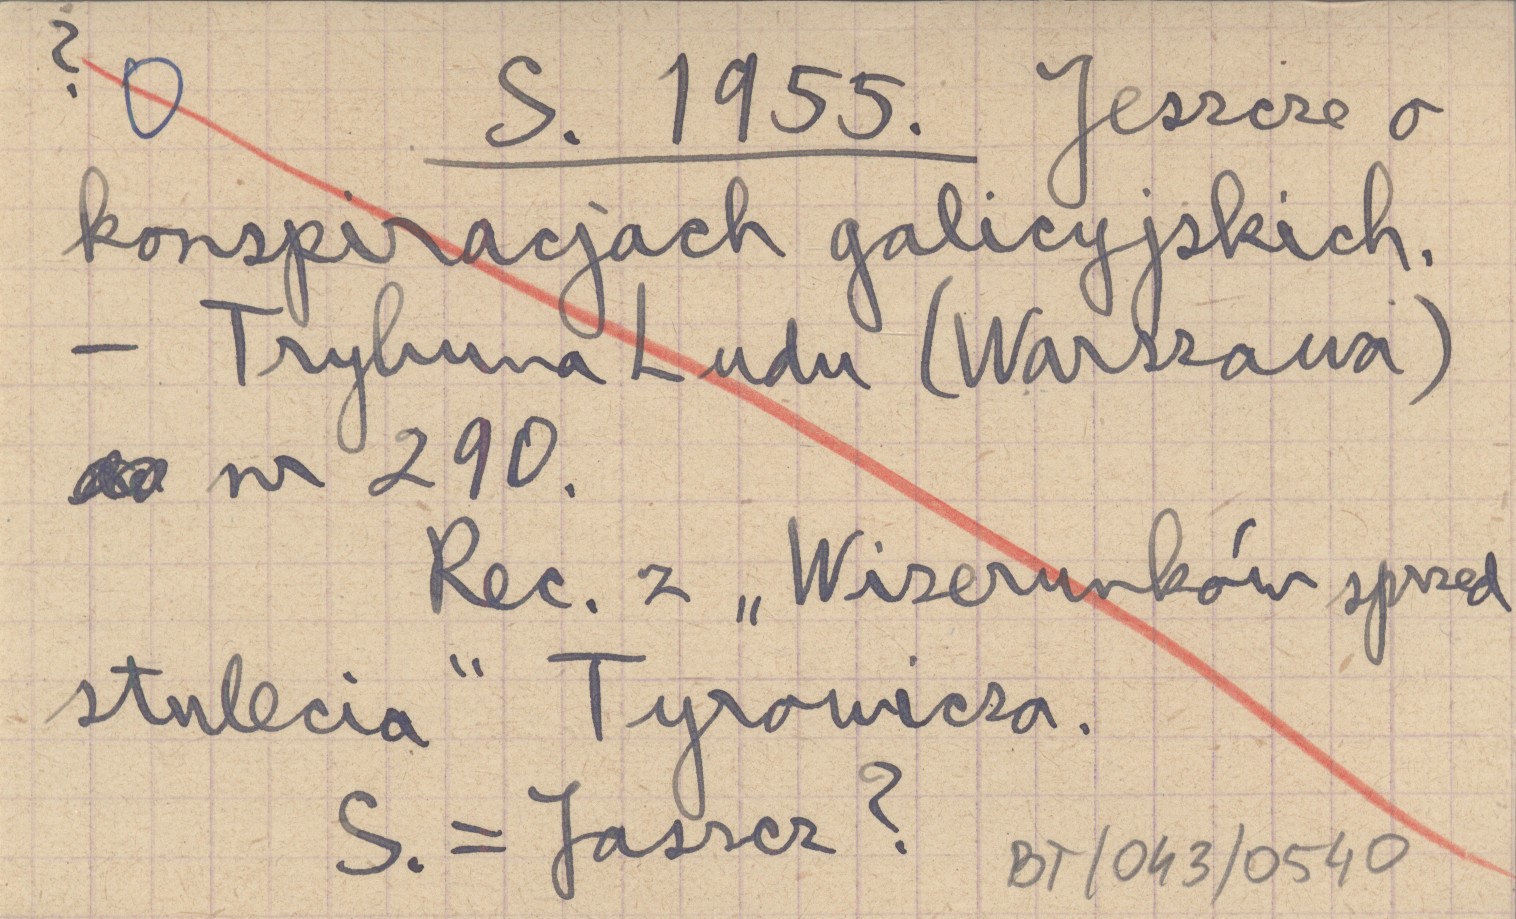 ? O S. 1955. Jeszcze o
konspiracjach galicyjskich.
– Trybuna Ludu (Warszawa)
nr 290.
Rec. z „Wizerunków sprzed
stulecia“ Tyrowicza.
S. = Jaszcz?
BT/043/0540